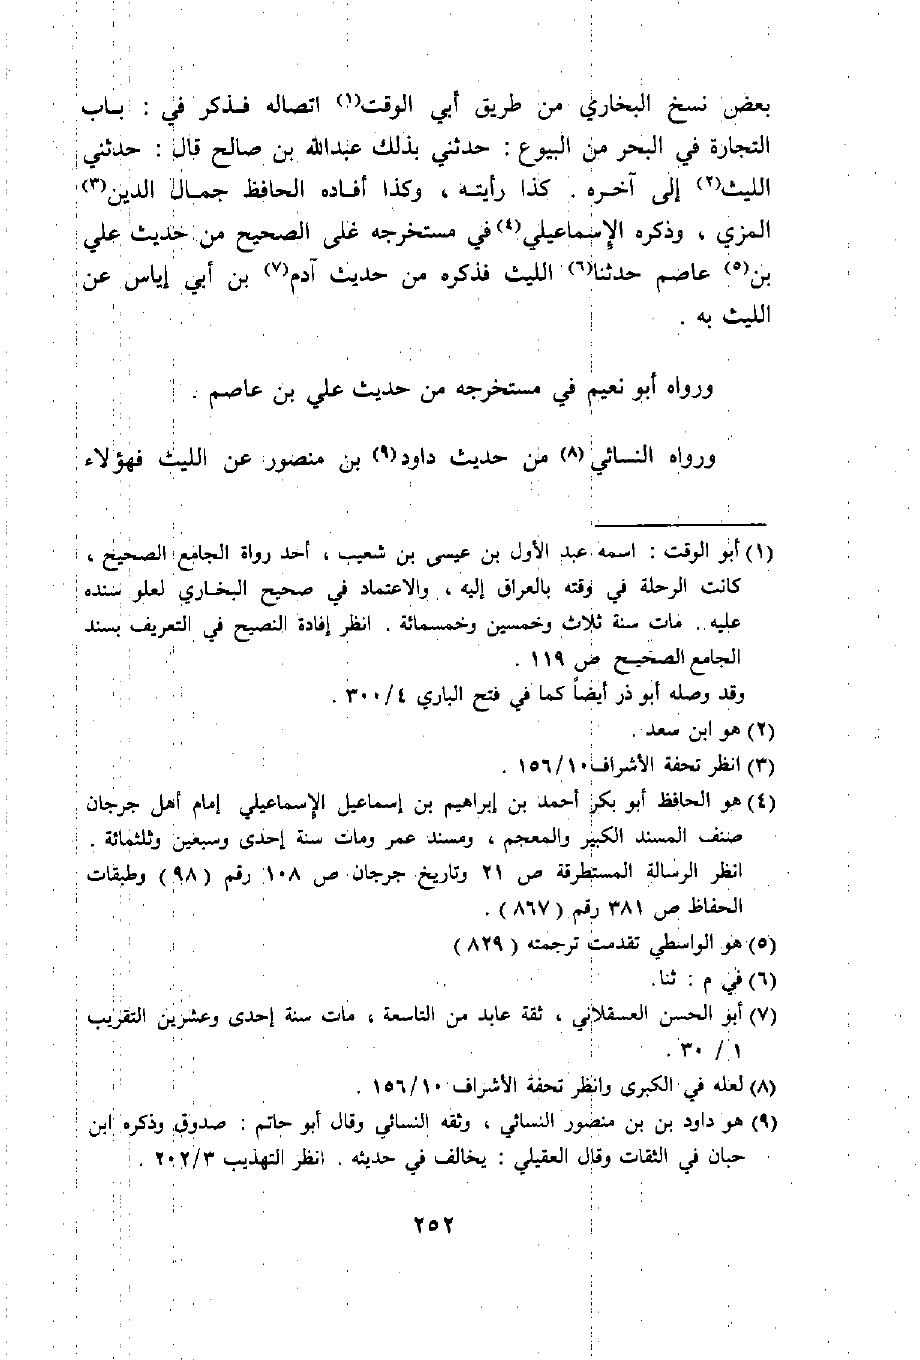 بعض نسخ البخاري من طريق أبي الوقت(١) اتصاله فـذكر في : بـاب
التجارة في البحر من البيوع : حدثني بذلك عبدالله بن صالح قال : حدثني
الليث(٢) إلى آخـره . كذا رأيتـه ، وكذا أفـاده الحافظ جمـال الدين(٣)
المزي ، وذكره الإسماعيلي(٤) في مستخرجه غلى الصحيح من حديث علي
بن(٥) عاصم حدثنا(٦) الليث فذكره من حديث آدم(٧) بن أبي إياس عن
الليث به .
ورواه أبو نعيم في مستخرجه من حديث علي بن عاصم .
ورواه النسائي(٨) من حديث داود(٩) بن منصور عن الليث فهؤلاء
(١) أبو الوقت : اسمه عبد الأول بن عيسى بن شعيب ، أحد رواة الجامع الصحيح ،
كانت الرحلة في وقته بالعراق إليه ، والاعتماد في صحيح البخـاري لعلو سنده
عليه . مات سنة ثلاث وخمسين وخمسمائة . انظر إفادة النصيح في التعريف بسند
الجامع الصحيـح ص ١١٩ .
وقد وصله أبو ذر أيضاً كما في فتح الباري ٣٠٠/٤ .
(٢) هو ابن سعد .
(٣) انظر تحفة الأشراف ١٥٦/١٠ .
(٤) هو الحافظ أبو بكر أحمد بن إبراهيم بن إسماعيل الإسماعيلي إمام أهل جرجان
صنف المسند الكبير والمعجم ، ومسند عمر ومات سنة إحدى وسبعين وثلثمائة .
انظر الرسالة المستطرقة ص ٢١ وتاريخ جرجان ص ١٠٨ رقم ( ٩٨ ) وطبقات
الحفاظ ص ٣٨١ رقم ( ٨٦٧ ) .
(٥) هو الواسطي تقدمت ترجمته ( ٨٢٩ )
(٦) في م : ثنا.
(٧) أبو الحسن العسقلاني ، ثقة عابد من التاسعة ، مات سنة إحدى وعشرين التقريب
١ / ٣٠ .
(٨) لعله في الكبرى وانظر تحفة الأشراف ١٥٦/١٠ .
(٩) هو داود بن بن منصور النسائي ، وثقه النسائي وقال أبو حاتم : صدوق وذكره ابن
حبان في الثقات وقال العقيلي : يخالف في حديثه . انظر التهذيب ٢٠٢/٣ .
٢٥٢